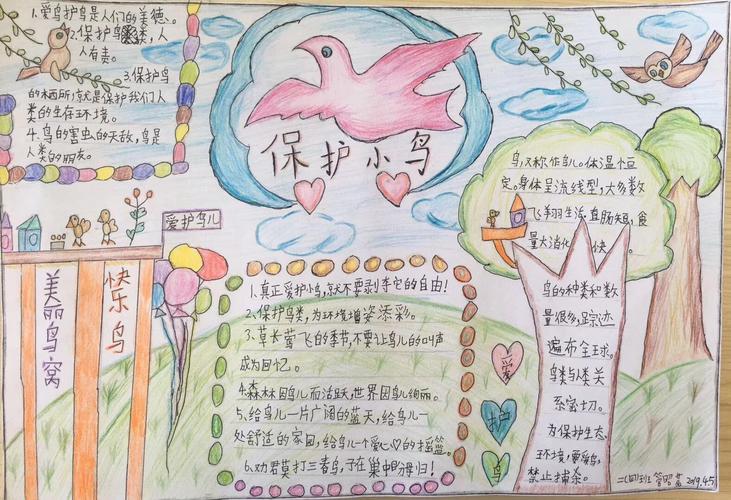 1.爱鸟护鸟是人们的美德。
2.保护鸟类,人
人有责。
3.保护鸟
的栖所,就是保护我们人
类的生存环境。
4.鸟的害虫的天敌,鸟是
人类的朋友。
保护小鸟
鸟,又称作鸟儿。体温恒
定。身体呈流线型,大多数
飞翔生活.直肠短,食
量大消化快。
爱护鸟儿
美丽鸟窝
快乐鸟
1.真正爱护小鸟,就不要剥夺它的自由!
2、保护鸟类,为环境增姿添彩。
3、草长莺飞的季节,不要让鸟儿的叫声
成为回忆。
4.森林因鸟儿而活跃,世界因鸟儿绚丽。
5、给鸟儿一片广阔的蓝天,给鸟儿一
处舒适的家园,给鸟儿个爱心的摇篮。
6、劝君莫打三春鸟,子在巢中盼母归!
爱
护
鸟
鸟的种类和数
量很多,踪迹
遍布全球。
鸟类与人类关
系密切。
为保护生态
环境,
禁止捕杀。
二(四)班
2019.4.5